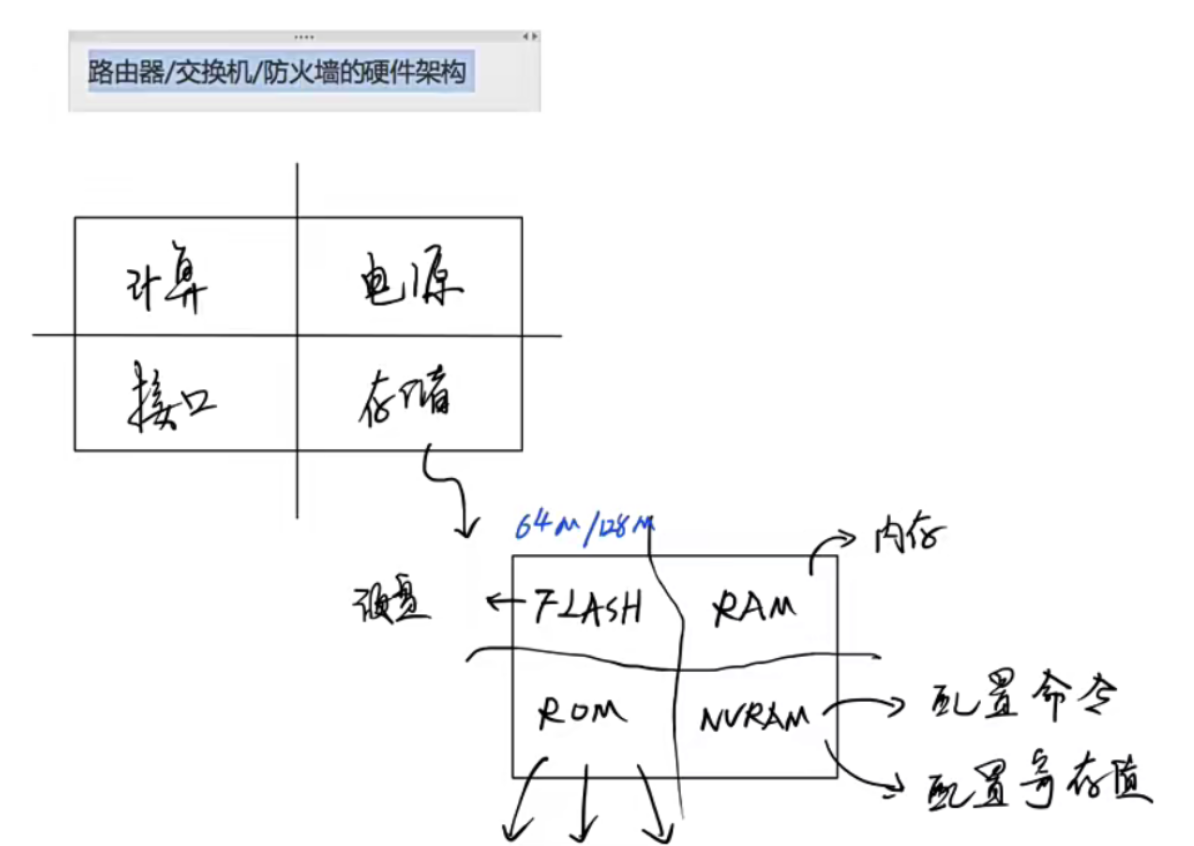 路由器/交换机/防火墙的硬件架构
计算
电源
接口
存储
64M/128M
内存
硬盘
FLASH
RAM
ROM
NVRAM
配置命令
配置寄存值